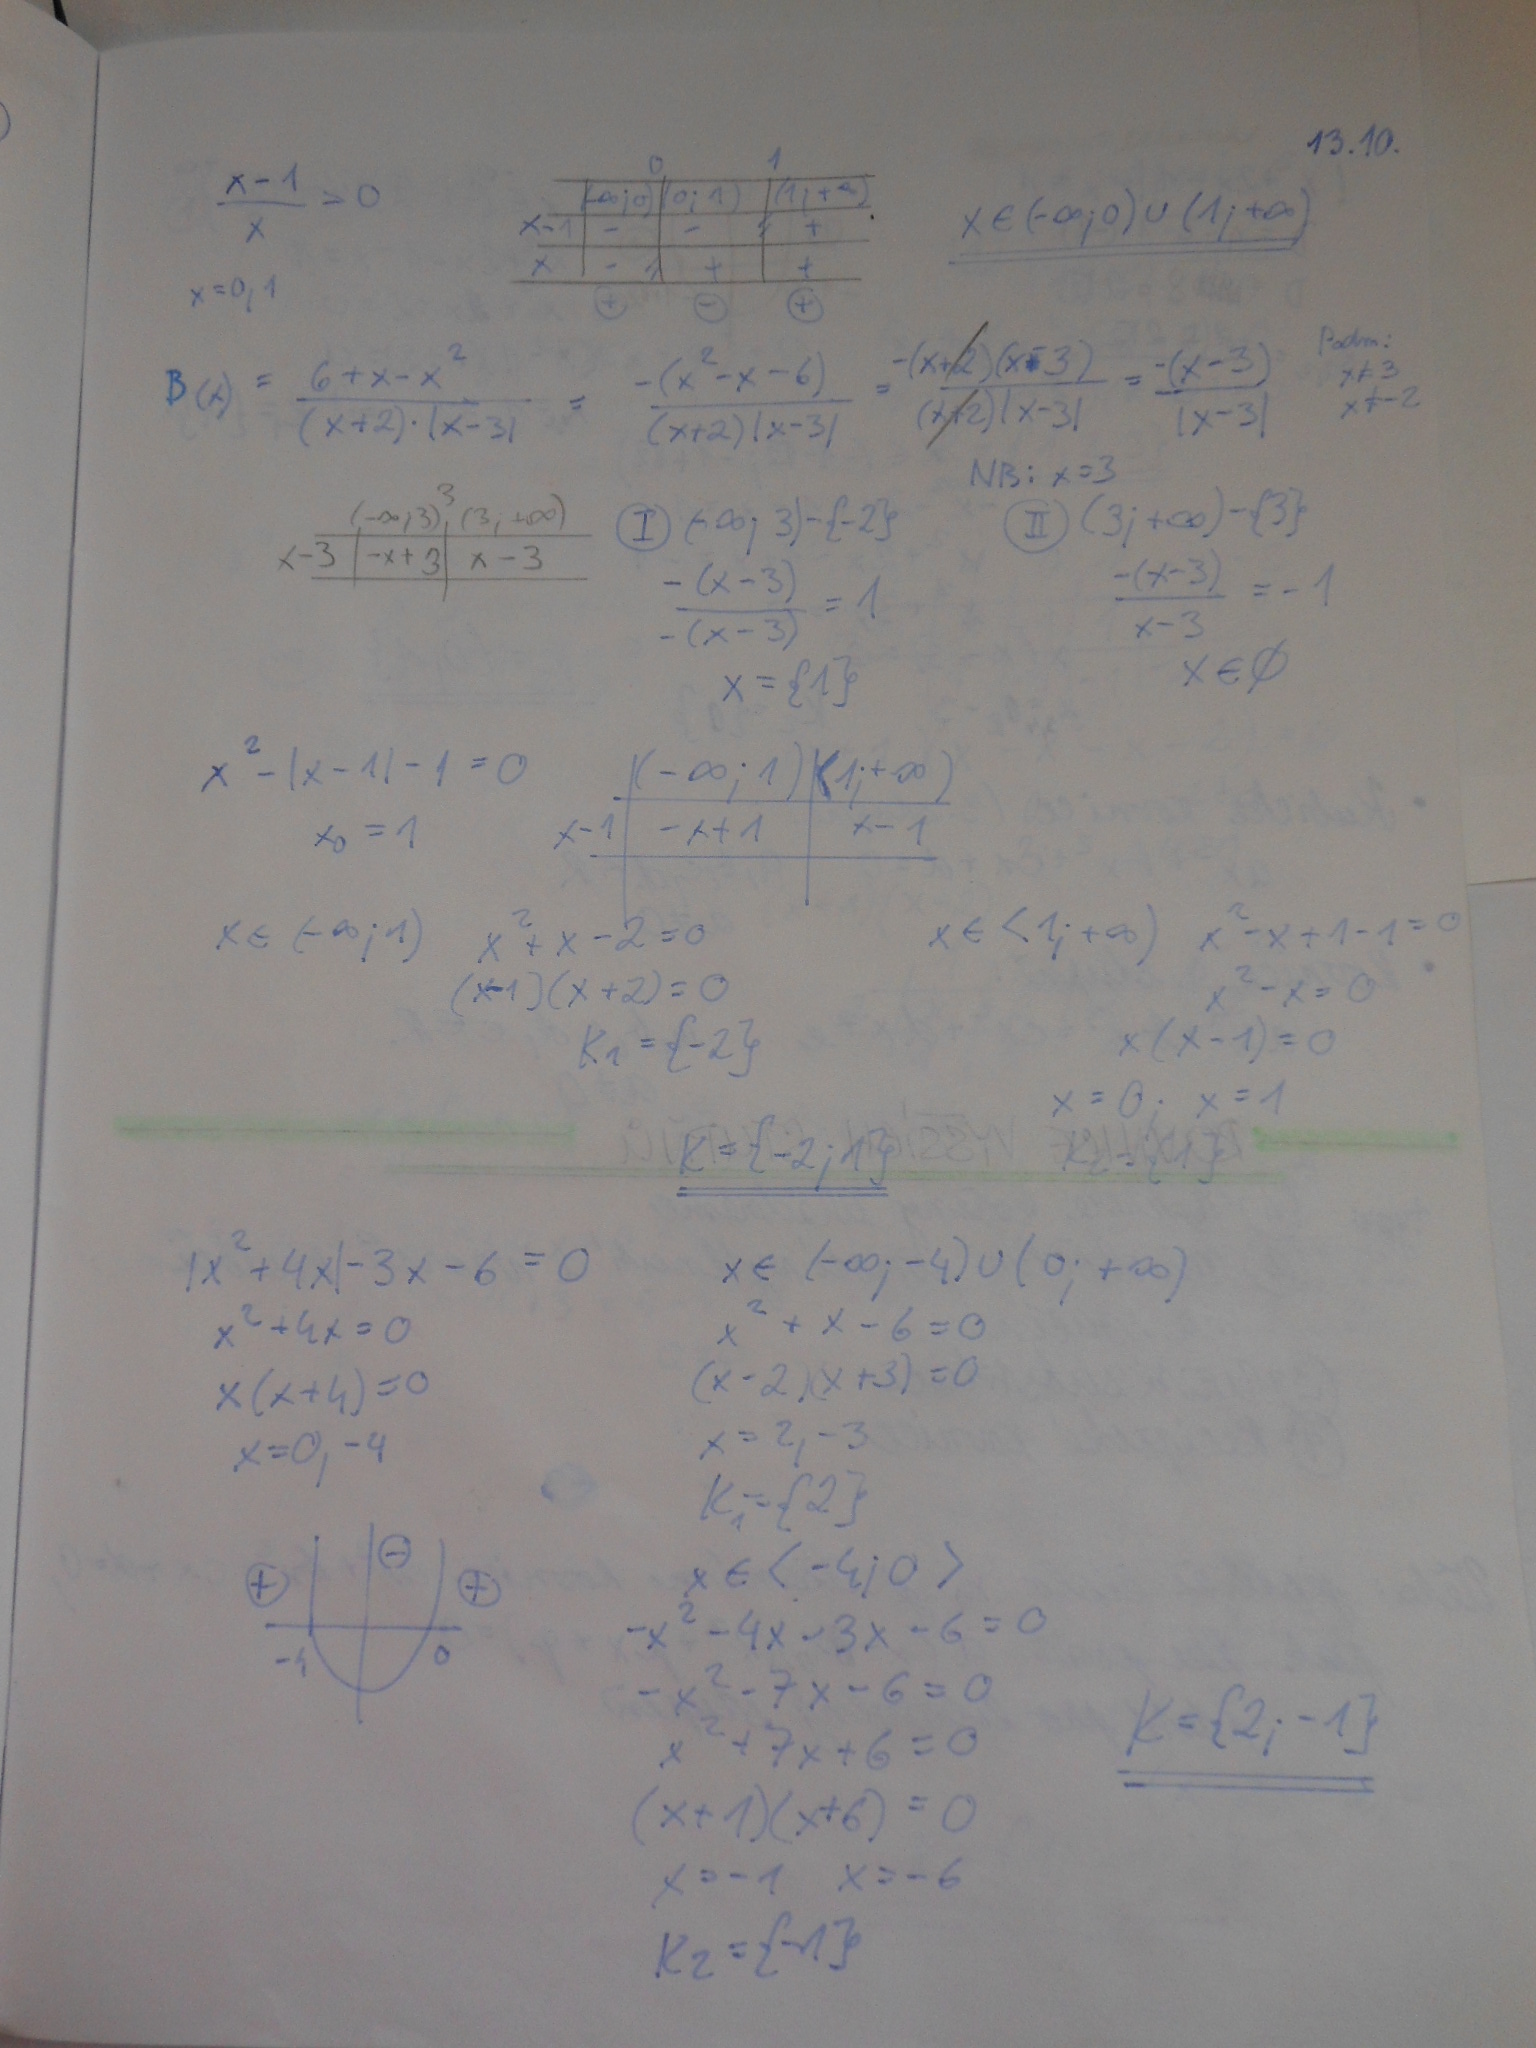 13.10.
(x-1)/x > 0
x=0,1
0 1
(-∞;0) (0;1) (1;+∞)
x-1 - - +
x - + +
⊕ ⊖ ⊕
x∈(-∞;0)∪(1;+∞)
B(x) = (6+x-x²)/((x+2)·|x-3|) = (-(x²-x-6))/((x+2)|x-3|) = (-(x+2)(x-3))/((x+2)|x-3|) = (-(x-3))/|x-3|
x≠3
x≠-2
NB: x=3
3
(-∞;3) (3;+∞)
x-3 -x+3 x-3
Ⓘ (-∞;3)-{-2}
(-(x-3))/(-(x-3)) = 1
x={1}
Ⅱ (3;+∞)-{3}
(-(x-3))/(x-3) = -1
x∈∅
x²-|x-1|-1=0
x₀=1
(-∞;1) ⟨1;+∞)
x-1 -x+1 x-1
x∈(-∞;1) x²+x-2=0
(x-1)(x+2)=0
K₁={-2}
x∈⟨1;+∞) x²-x+1-1=0
x²-x=0
x(x-1)=0
x=0; x=1
K₂={1}
K={-2;1}
|x²+4x|-3x-6=0
x²+4x=0
x(x+4)=0
x=0,-4
⊕ ⊖ ⊕
-4 0
x∈(-∞;-4)∪(0;+∞)
x²+x-6=0
(x-2)(x+3)=0
x=2,-3
K₁={2}
x∈⟨-4;0⟩
-x²-4x-3x-6=0
-x²-7x-6=0
x²+7x+6=0
(x+1)(x+6)=0
x=-1 x=-6
K₂={-1}
K={2;-1}